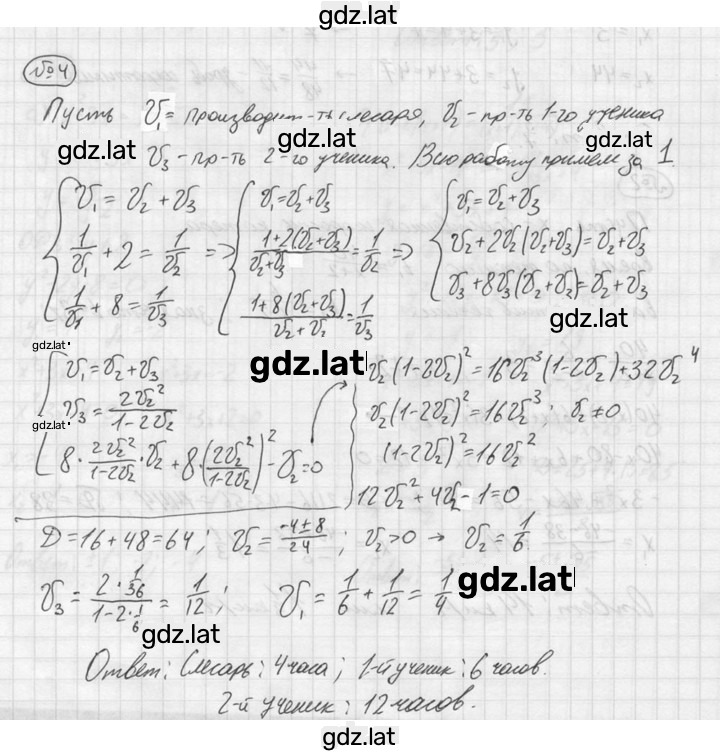 gdz.lat
№4
Пусть V₁ = производит-ть слесаря, V₂ - пр-ть 1-го ученика
gdz.lat gdz.lat gdz.lat
V₃ - пр-ть 2-го ученика. Всю работу примем за 1.
V₁ = V₂ + V₃
1/V₁ + 2 = 1/V₂ =>
1/V₁ + 8 = 1/V₃
V₁ = V₂ + V₃
(1+2(V₂+V₃))/(V₂+V₃) = 1/V₂ =>
(1+8(V₂+V₃))/(V₂+V₂) = 1/V₃
V₁ = V₂ + V₃
V₂ + 2V₂(V₂+V₃) = V₂+V₃
V₃ + 8V₃(V₂+V₂) = V₂+V₃
gdz.lat
gdz.lat
V₁ = V₂ + V₃
V₃ = 2V₂²/(1-2V₂)
gdz.lat
8·2V₂²/(1-2V₂)·V₂ + 8·(2V₂²/(1-2V₂))² - V₂ = 0
V₂(1-2V₂)² = 16V₂³(1-2V₂)+32V₂⁴
V₂(1-2V₂)² = 16V₂³; V₂ ≠ 0
(1-2V₂)² = 16V₂²
12V₂² + 4V₂ - 1 = 0
D = 16 + 48 = 64; V₂ = (-4±8)/24; V₂ > 0 → V₂ = 1/6
gdz.lat
V₃ = (2·1/36)/(1-2·1/6) = 1/12; V₁ = 1/6 + 1/12 = 1/4
gdz.lat
Ответ: Слесарь: 4 часа; 1-й ученик: 6 часов.
2-й ученик: 12 часов.
gdz.lat